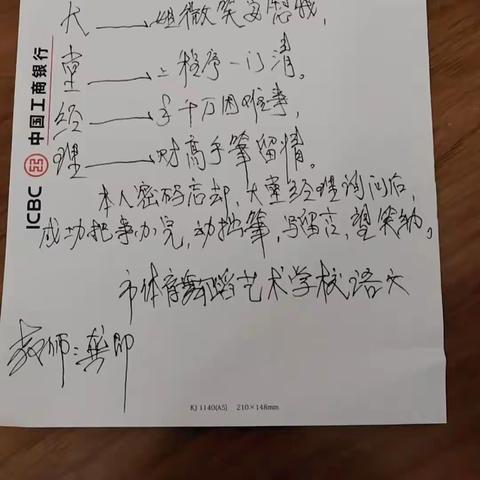 大——姐微笑多慰我，
堂——上程序一门清。
经——手千万困难事，
理——财高手笔留情。
本人密码忘却，大堂经理询问后，
成功把事办完，动拙笔，写留言，望笑纳。
市体育舞蹈艺术学校语文
教师：龚即
ICBC 中国工商银行
KJ 1140(A5) 210×148mm